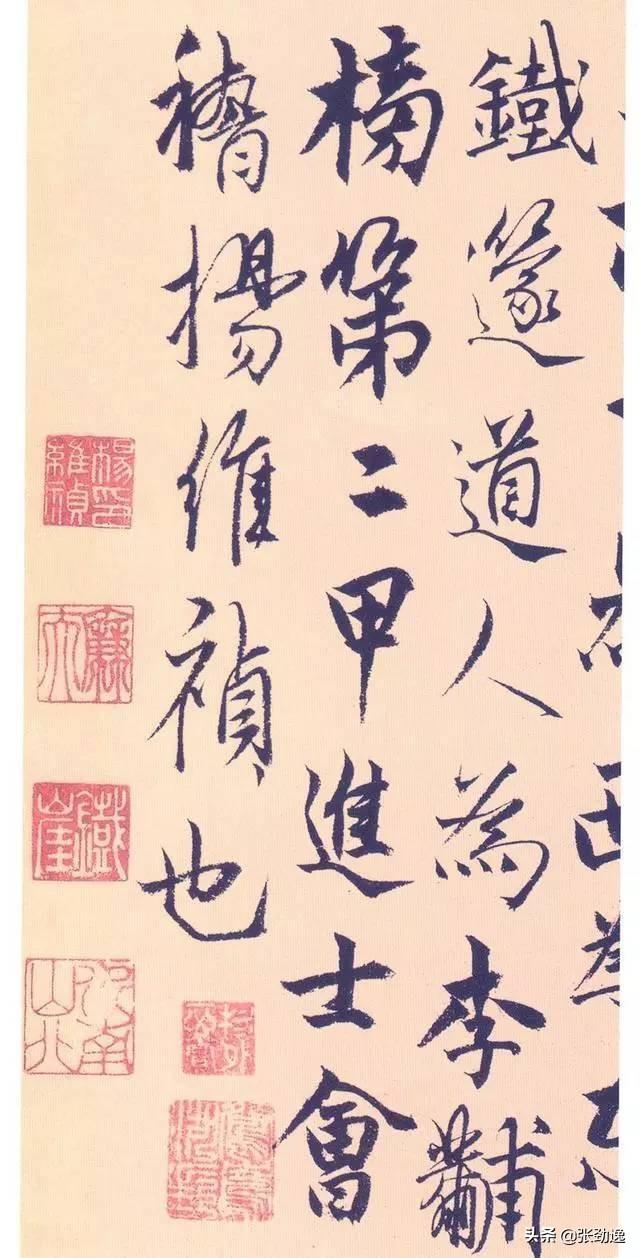 鐵篴道人為李黼
榜第二甲進士會
稽楊維禎也
楊印
維禎
廉夫
鐵崖
头条 @张劲逸